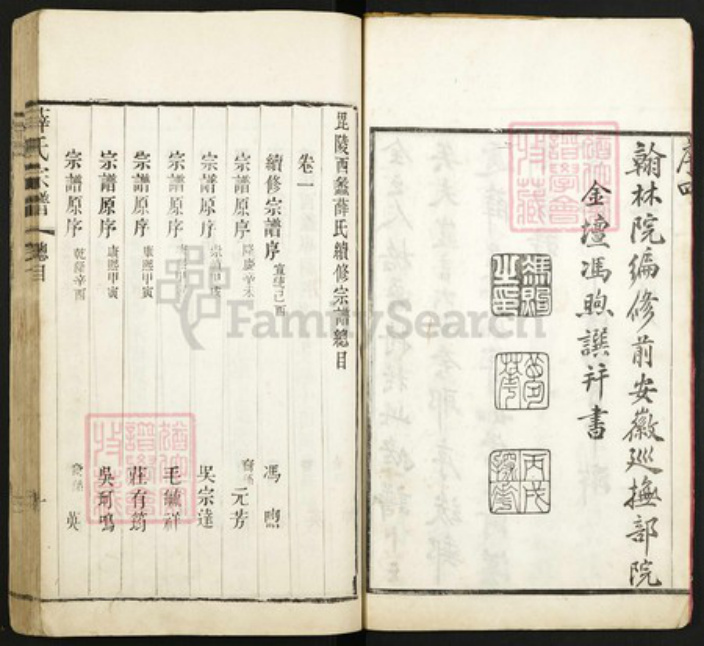 序四
翰林院編修前安徽巡撫部院
金壇馮煦譔并書
馮煦之印
蒿叟
丙戌
毘陵西蠡薛氏續修宗譜總目
卷一
續修宗譜序 宣統己酉 馮煦
宗譜原序 隆慶辛未 元芳
宗譜原序 吳宗達
宗譜原序 毛緘祥
宗譜原序 康熙甲寅 莊有筠
宗譜原序 康熙甲寅 吳珂鳴
宗譜原序 乾隆辛酉 英
薛氏宗譜 總目 一
FamilySearch